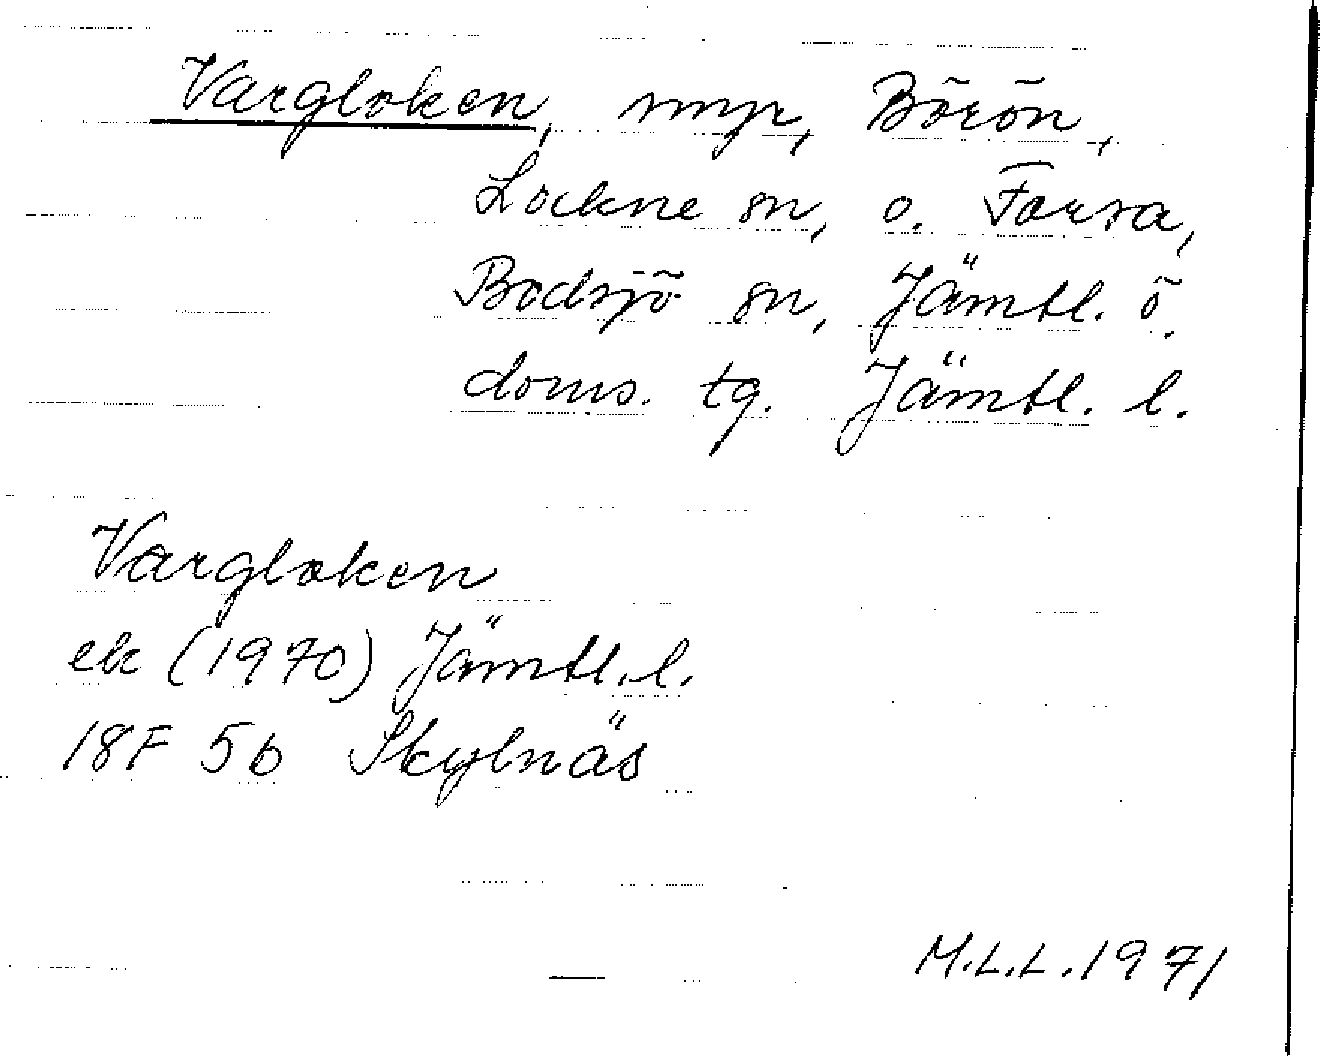 Vargloken, myr, Börön,
Lockne sn, o. Forsa,
Bodsjö sn, Jämtl. ö.
doms. tg. Jämtl. l.
Vargloken
ek (1970) Jämtl. l.
18F 5b Skylnäs
M.L.L. 1971